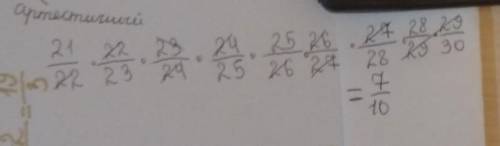 артестичний
21/22 · 22/23 · 23/24 · 24/25 · 25/26 · 26/27 · 27/28 · 28/29 · 29/30
= 7/10